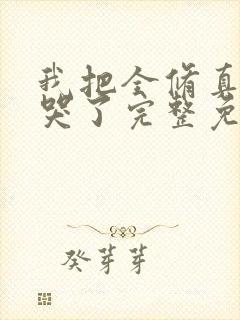 我把全修真
哭了完整免
癸芽芽